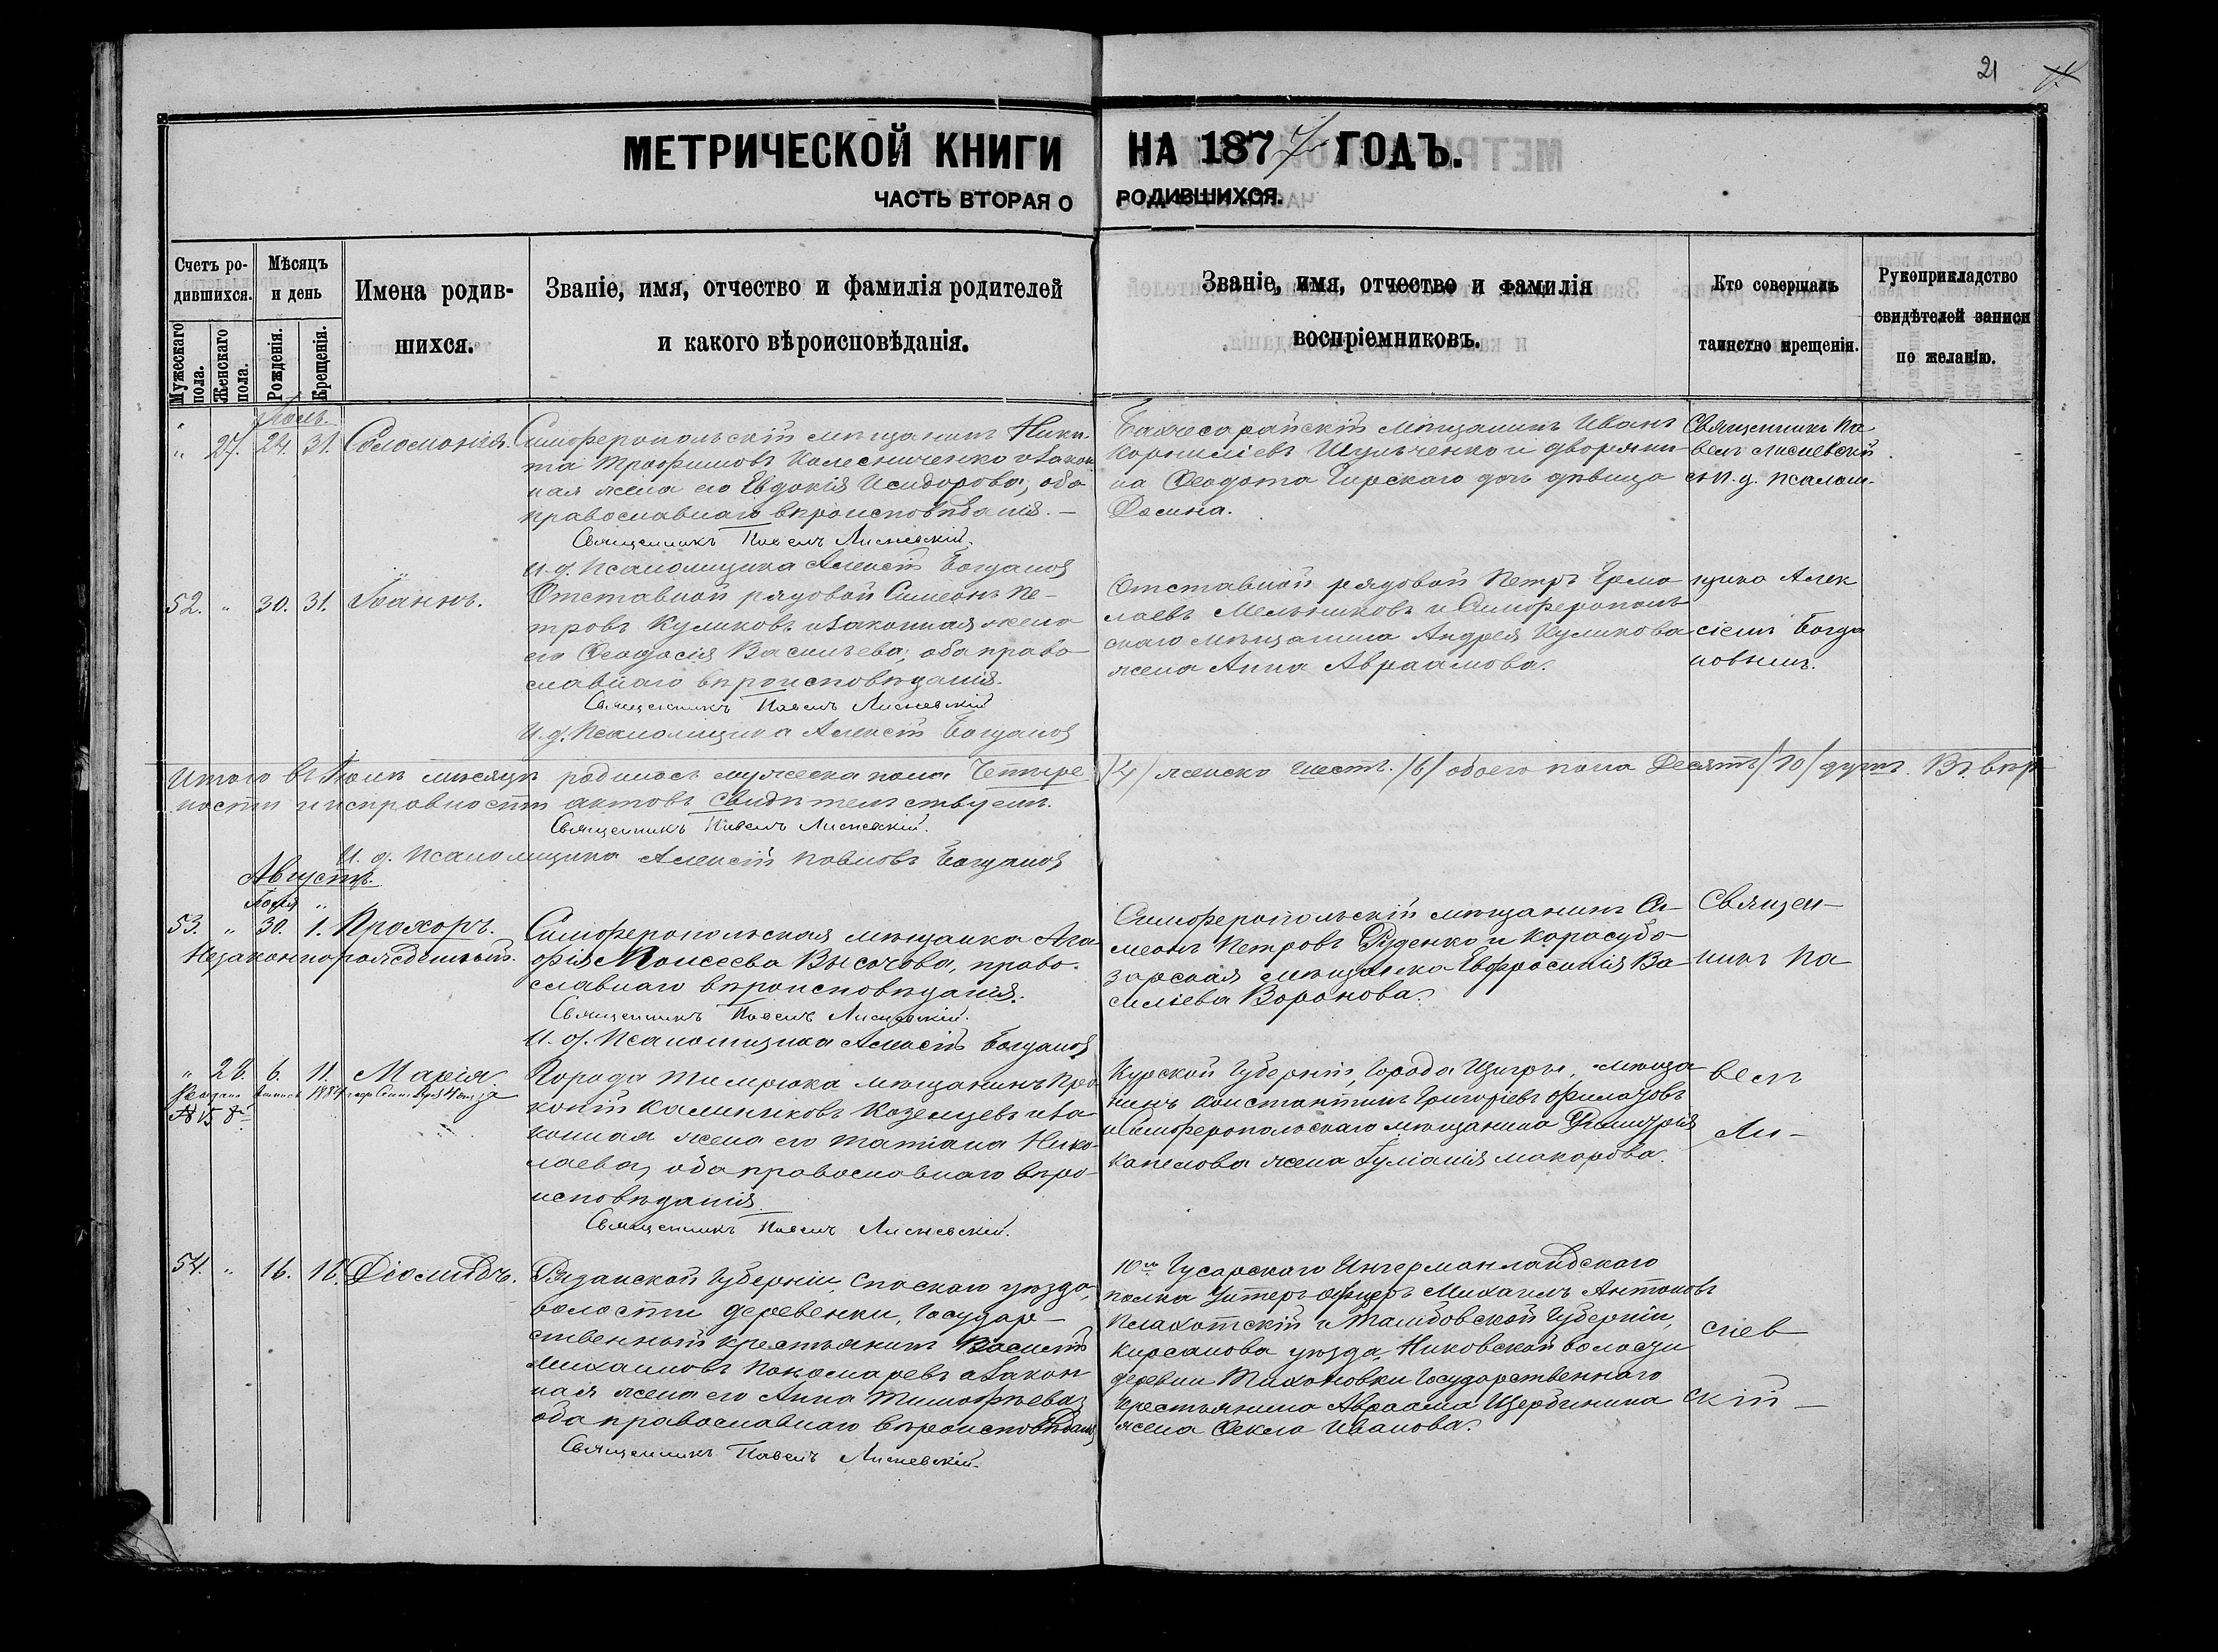 21
МЕТРИЧЕСКОЙ КНИГИ НА 1877 ГОДЪ.
ЧАСТЬ ВТОРАЯ О РОДИВШИХСЯ.
Счетъ родившихся.
Мужескаго пола.
Женскаго пола.
Мѣсяцъ и день
Рожденія.
Крещенія.
Имена родив-
шихся.
Званіе, имя, отчество и фамилія родителей
и какого вѣроисповѣданія.
Званіе, имя, отчество и фамилія
воспріемниковъ.
Кто совершалъ
таинство крещенія.
Рукоприкладство
свидѣтелей записи
по желанію.
Іюль.
27. 24. 31. Соломонія.
Симферопольскій мѣщанинъ Ники-
та Трофимовъ Колесниченко и закон
ная жена его Евдокія Исидорова, оба
православнаго вѣроисповѣданія.
Священникъ Павелъ Лисневскій.
И. д. Псаломщика Алексѣй Богданов
Бахчесарайскій мѣщанинъ Иванъ
Корниліевъ Шульченко и дворяни
на Феодота Гирскаго дочь дѣвица
Священникъ Па
велъ Лисневскій
съ И. д. псалом-
52. " 30. 31. Іоаннъ.
Отставной рядовой Симеонъ Пе-
тровъ Куликовъ и законная жена
его Феодосія Васильева, оба право-
славнаго вѣроисповѣданія.
Священникъ Павелъ Лисневскій
И. д. Псаломщика Алексѣй Богданов
Отставной рядовой Петръ Ермо
лаевъ Мельниковъ и Симферополь
скаго мѣщанина Андрея Куликова
жена Анна Авраамова.
щика Алек
сіемъ Богда
новымъ.
Итого въ Іюлѣ мѣсяцѣ родилось мужеска пола Четыре /4/ женска шесть /6/ обоего пола Десять /10/ душъ. Въ вѣр
ности и исправности актовъ свидѣтельствуемъ.
Священникъ Павелъ Лисневскій.
И. д. Псаломщика Алексій Павловъ Богданов
Августъ.
Іюля "
53. " 30. 1. Прохоръ.
Незаконнорожденный.
Симферопольская мѣщанка Ага
фія Моисеева Высочова, право-
славнаго вѣроисповѣданія.
Священникъ Павелъ Лисневскій.
И. д. Псаломщика Алексѣй Богданов
Симферопольскій мѣщанинъ Си-
меонъ Петровъ Руденко и Карасуба-
зарская мѣщанка Евфросинія Ва-
силіева Воронова.
Священ-
никъ Па
" 28. 6. 11. Марія.
1884
№ 158
Города Темрюка мѣщанинъ Про
копій Калиниковъ Козельцевъ и за-
конная жена его Татіана Нико-
лаева, оба православнаго вѣро-
исповѣданія.
Священникъ Павелъ Лисневскій.
Курской Губерніи, Города Щигры, мѣща
нинъ Константинъ Григоріевъ Филатовъ
и Симферопольскаго мѣщанина Димитрія
Капелова жена Іуліанія Макарова.
велъ
Ли-
54. " 16. 18. Діомидъ.
Рязанской Губерніи, Спаскаго уѣзда,
волости деревенки, Государ-
ственный крестьянинъ Василій
Михаиловъ Пономаревъ и закон
ная жена его Анна Тимофѣева,
оба православнаго вѣроисповѣданія
Священникъ Павелъ Лисневскій.
10го Гусарскаго Ингерманландскаго
полка Унтеръ офицеръ Михаилъ Антоновъ
и Тамбовской Губерніи,
Кирсанова уѣзда, волости
деревни Тихоновки Государственнаго
крестьянина Авраама Щербинина
жена Фекла Иванова.
снев
скій